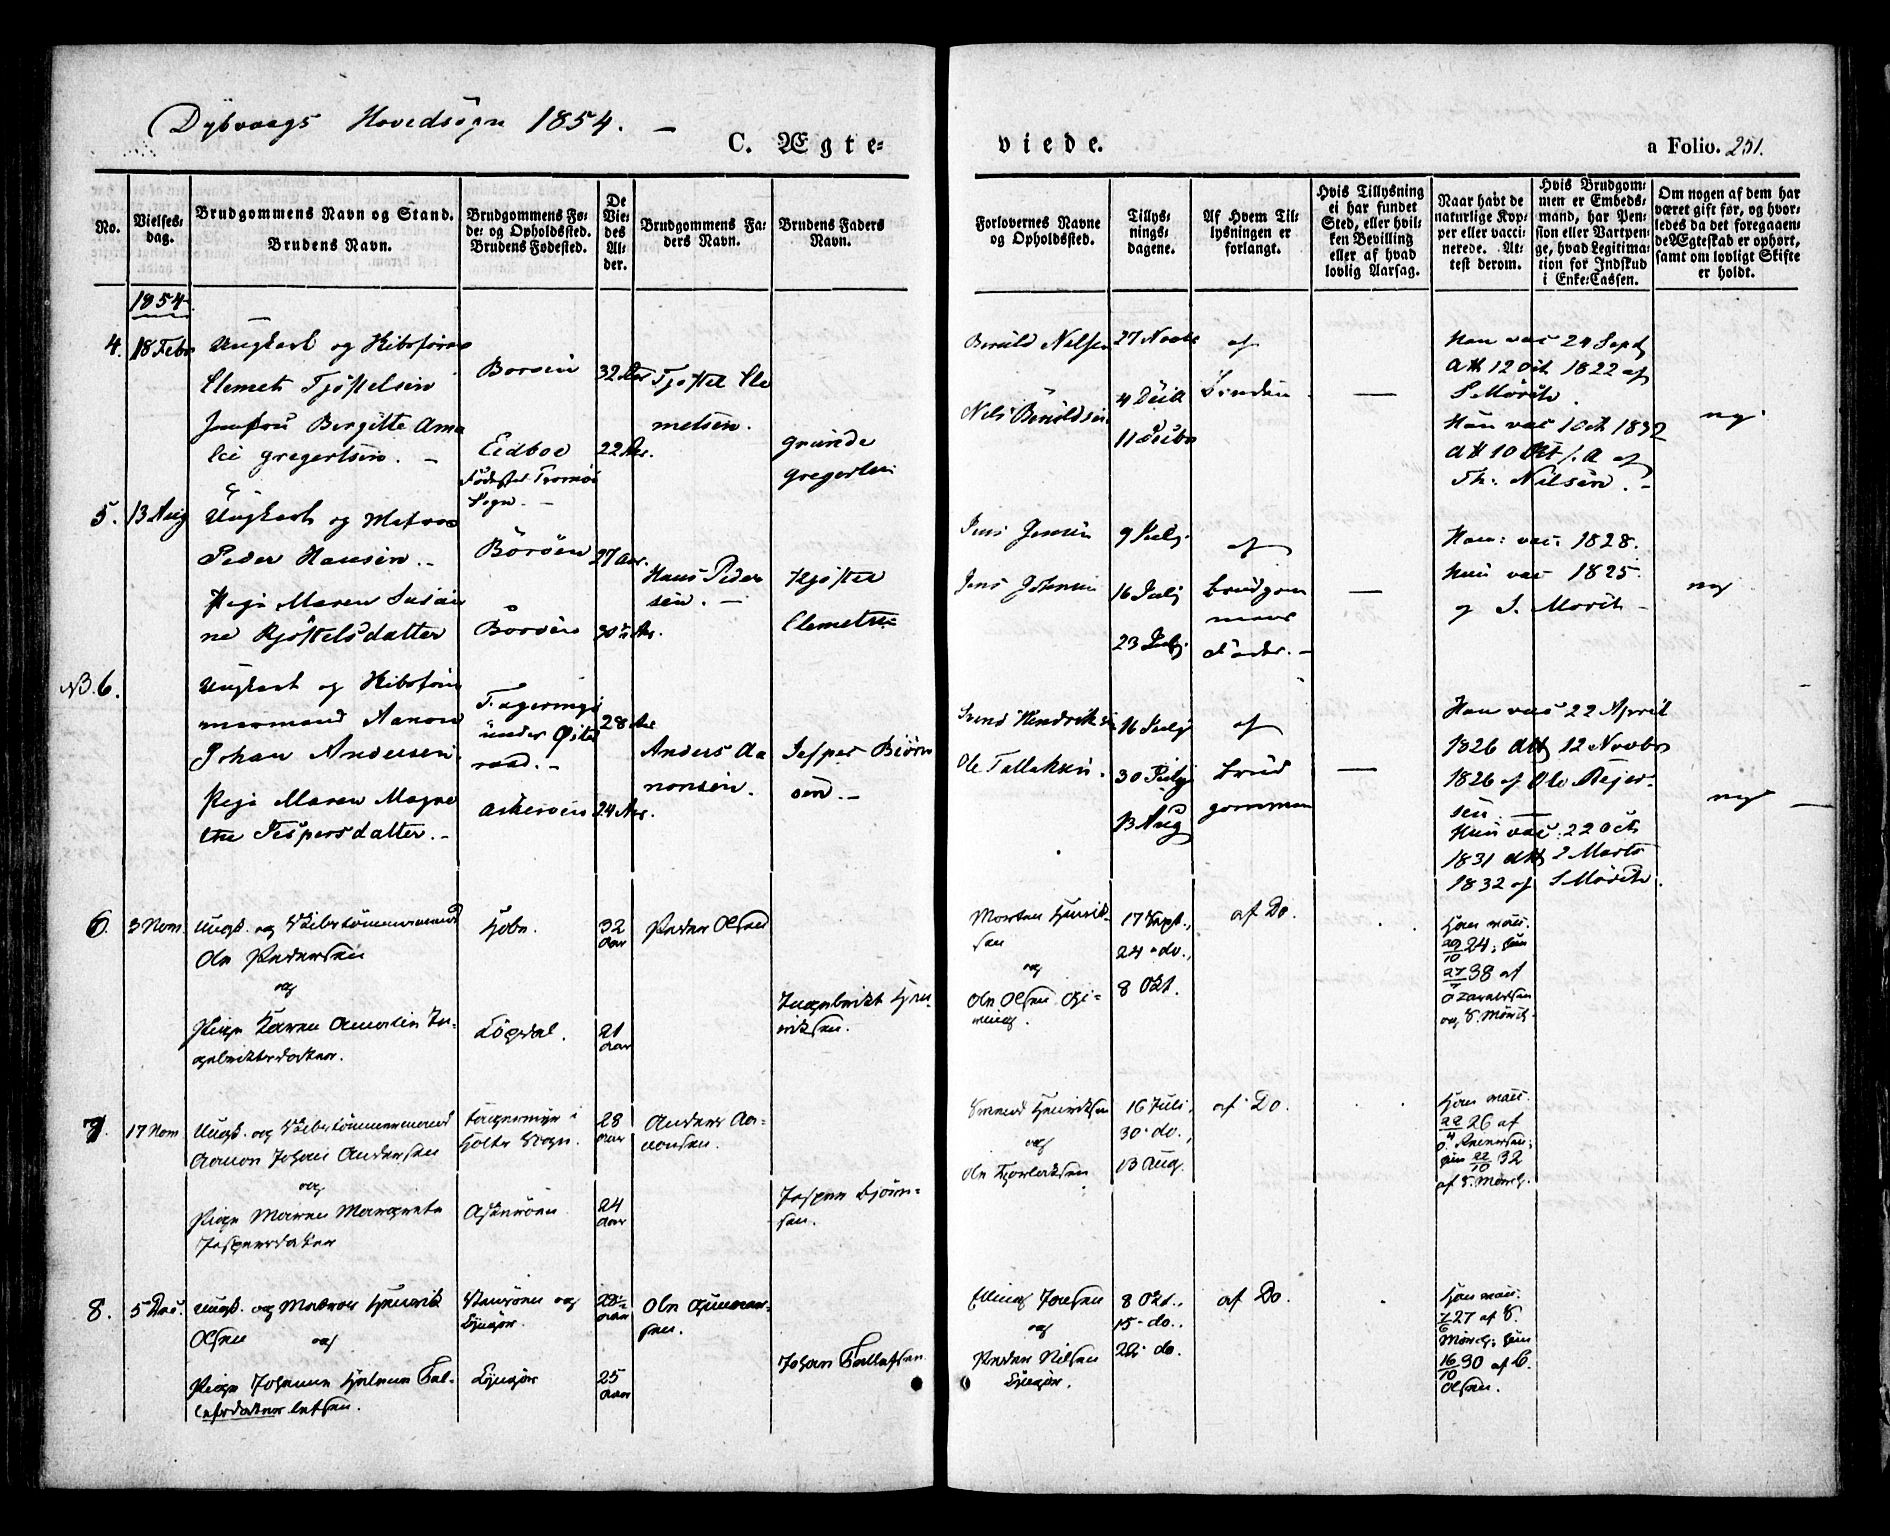 Dybvaags Hovedsogn 1854. —
C. Ægte=
viede.
a Folio. 251.
No.
Vielses-
dag.
Brudgommens Navn og Stand.
Brudens Navn.
Brudgommens Fø-
de- og Opholdssted.
Brudens Fødested.
De
Vie-
des
Al-
der.
Brudgommens Fa-
ders Navn.
Brudens Faders
Navn.
Forlovernes Navne
og Opholdssted.
Tillys-
nings-
dagene.
Af Hvem Til-
lysningen er
forlangt.
Hvis Tillysning
ei har fundet
Sted, eller hvil-
ken Bevilling
eller af hvad
lovlig Aarsag.
Naar havt de
naturlige Kop-
per eller vacci-
nerede. At-
test derom.
Hvis Brudgom-
men er Embeds-
mand, har Pen-
sion eller Vartpen-
ge, hvad Legitima-
tion for Indskud
i Enke-Cassen.
Om nogen af dem har
været gift før, og hvor-
ledes da det foregaaen-
de Ægteskab er ophørt,
samt om lovligt Skifte
er holdt.
1854
4.
18 Febr
Ungkarl og
Clemet Tjøstelsen
Jomfru Bergitte Ama
lie Gregertsen. —
Borøen
Eidboe
Fødested Tromøe
Sogn. —
32 Aar
22 Aar.
Tjøstel Cle
metsen.
Grunde
Gregertsen
Berulf Nilsen
Nils
27 Novbr
4 Decb
11 Decbr
af
Bruden
—
Han vac 24 Sept
Att 12 Oct 1822 af
S Mörch.
Hun vac 1 Oct 1832
Att 10 Oct s. A af
Th: Nilsen. —
nej.
5.
13 Aug
Ungkarl og Matros
Peder Hansen. —
Pige Maren Susan
ne Kjøstelsdatter
Borøen
Borøen
27 Aar.
30½ Aar.
Hans Peder
sen. —
Kjøstel
Clemetsen
Jens Jensen
Jens Johnsen
9 July.
16 July
23 July.
af
Brudgom
mens
Fader. —
—
Han: vac: 1828.
Hun vac 1825.
af S. Morch —
nej
NB. 6.
Ungkarl og Kibstøm
mermand Aanon
Johan Andersen
Pige Maren Magre
the Jespersdatter. —
Fagermyr
under Øster
raad. —
Askerøen
28 Aar
24 Aar.
Anders Aa
nonsen.
Jesper Biørn
sen. —
Svend Hendriksen
Ole Tallaksen.
16 July
30 July
13 Aug
af
Brud
gommen
—
Han vac 22 April
1826 Att 12 Novbr
1826 af Ole Rejer
sen. —
Hun vac: 22 Oct
1831 Att 2 Marts
1832 af S Mörch.
nej
6.
3 Nov.
Ungk. og Skibstömmermand
Ole Pedersen
og
Pige Karen Amalia In-
gebretsdatter.
Løgdal.
32
Aar
21
Aar
Peder Olsen
Ingebrekt Hen-
riksen.
Morten Henrik-
sen
og
Ole Olsen
17 Sept.,
24 - do.,
8 Okt.
af Do.
Han vac.
24; hun
38 af
og S. Mörch.
7.
17 Nov.
Ungk. og Skibstömmermand
Aanon Johan Andersen
og
Pige Maren Margrete
Jespersdatter
Fagermyr i
Holts Sogn.
Askerøen
28
Aar
24
Aar
Anders Aa-
nonsen.
Jesper Bjørn-
sen.
Svend Henriksen
og
16 Juli,
30 - do.,
13 Aug.
af Do.
Han vac.
22/4 26 af
hun 22/10 32
af S. Mörch.
8.
5 Dec.
Ungk. og Matros Henrik
Olsen og
Pige Johanne Helene Tal-
lefsdatter lefsen.
og
Lyngør.
Lyngør
28½
Aar
25
Aar
Ole Gunvor-
sen.
Johan Tallefsen
Elling Jensen
og
Peder Nilsen
Lyngør.
8 Okt.,
15 - do.,
22 - do.
af Do.
Han vac.
7/6 27 af S.
Mörch; hun
16/10 30 af C.
Olsen.